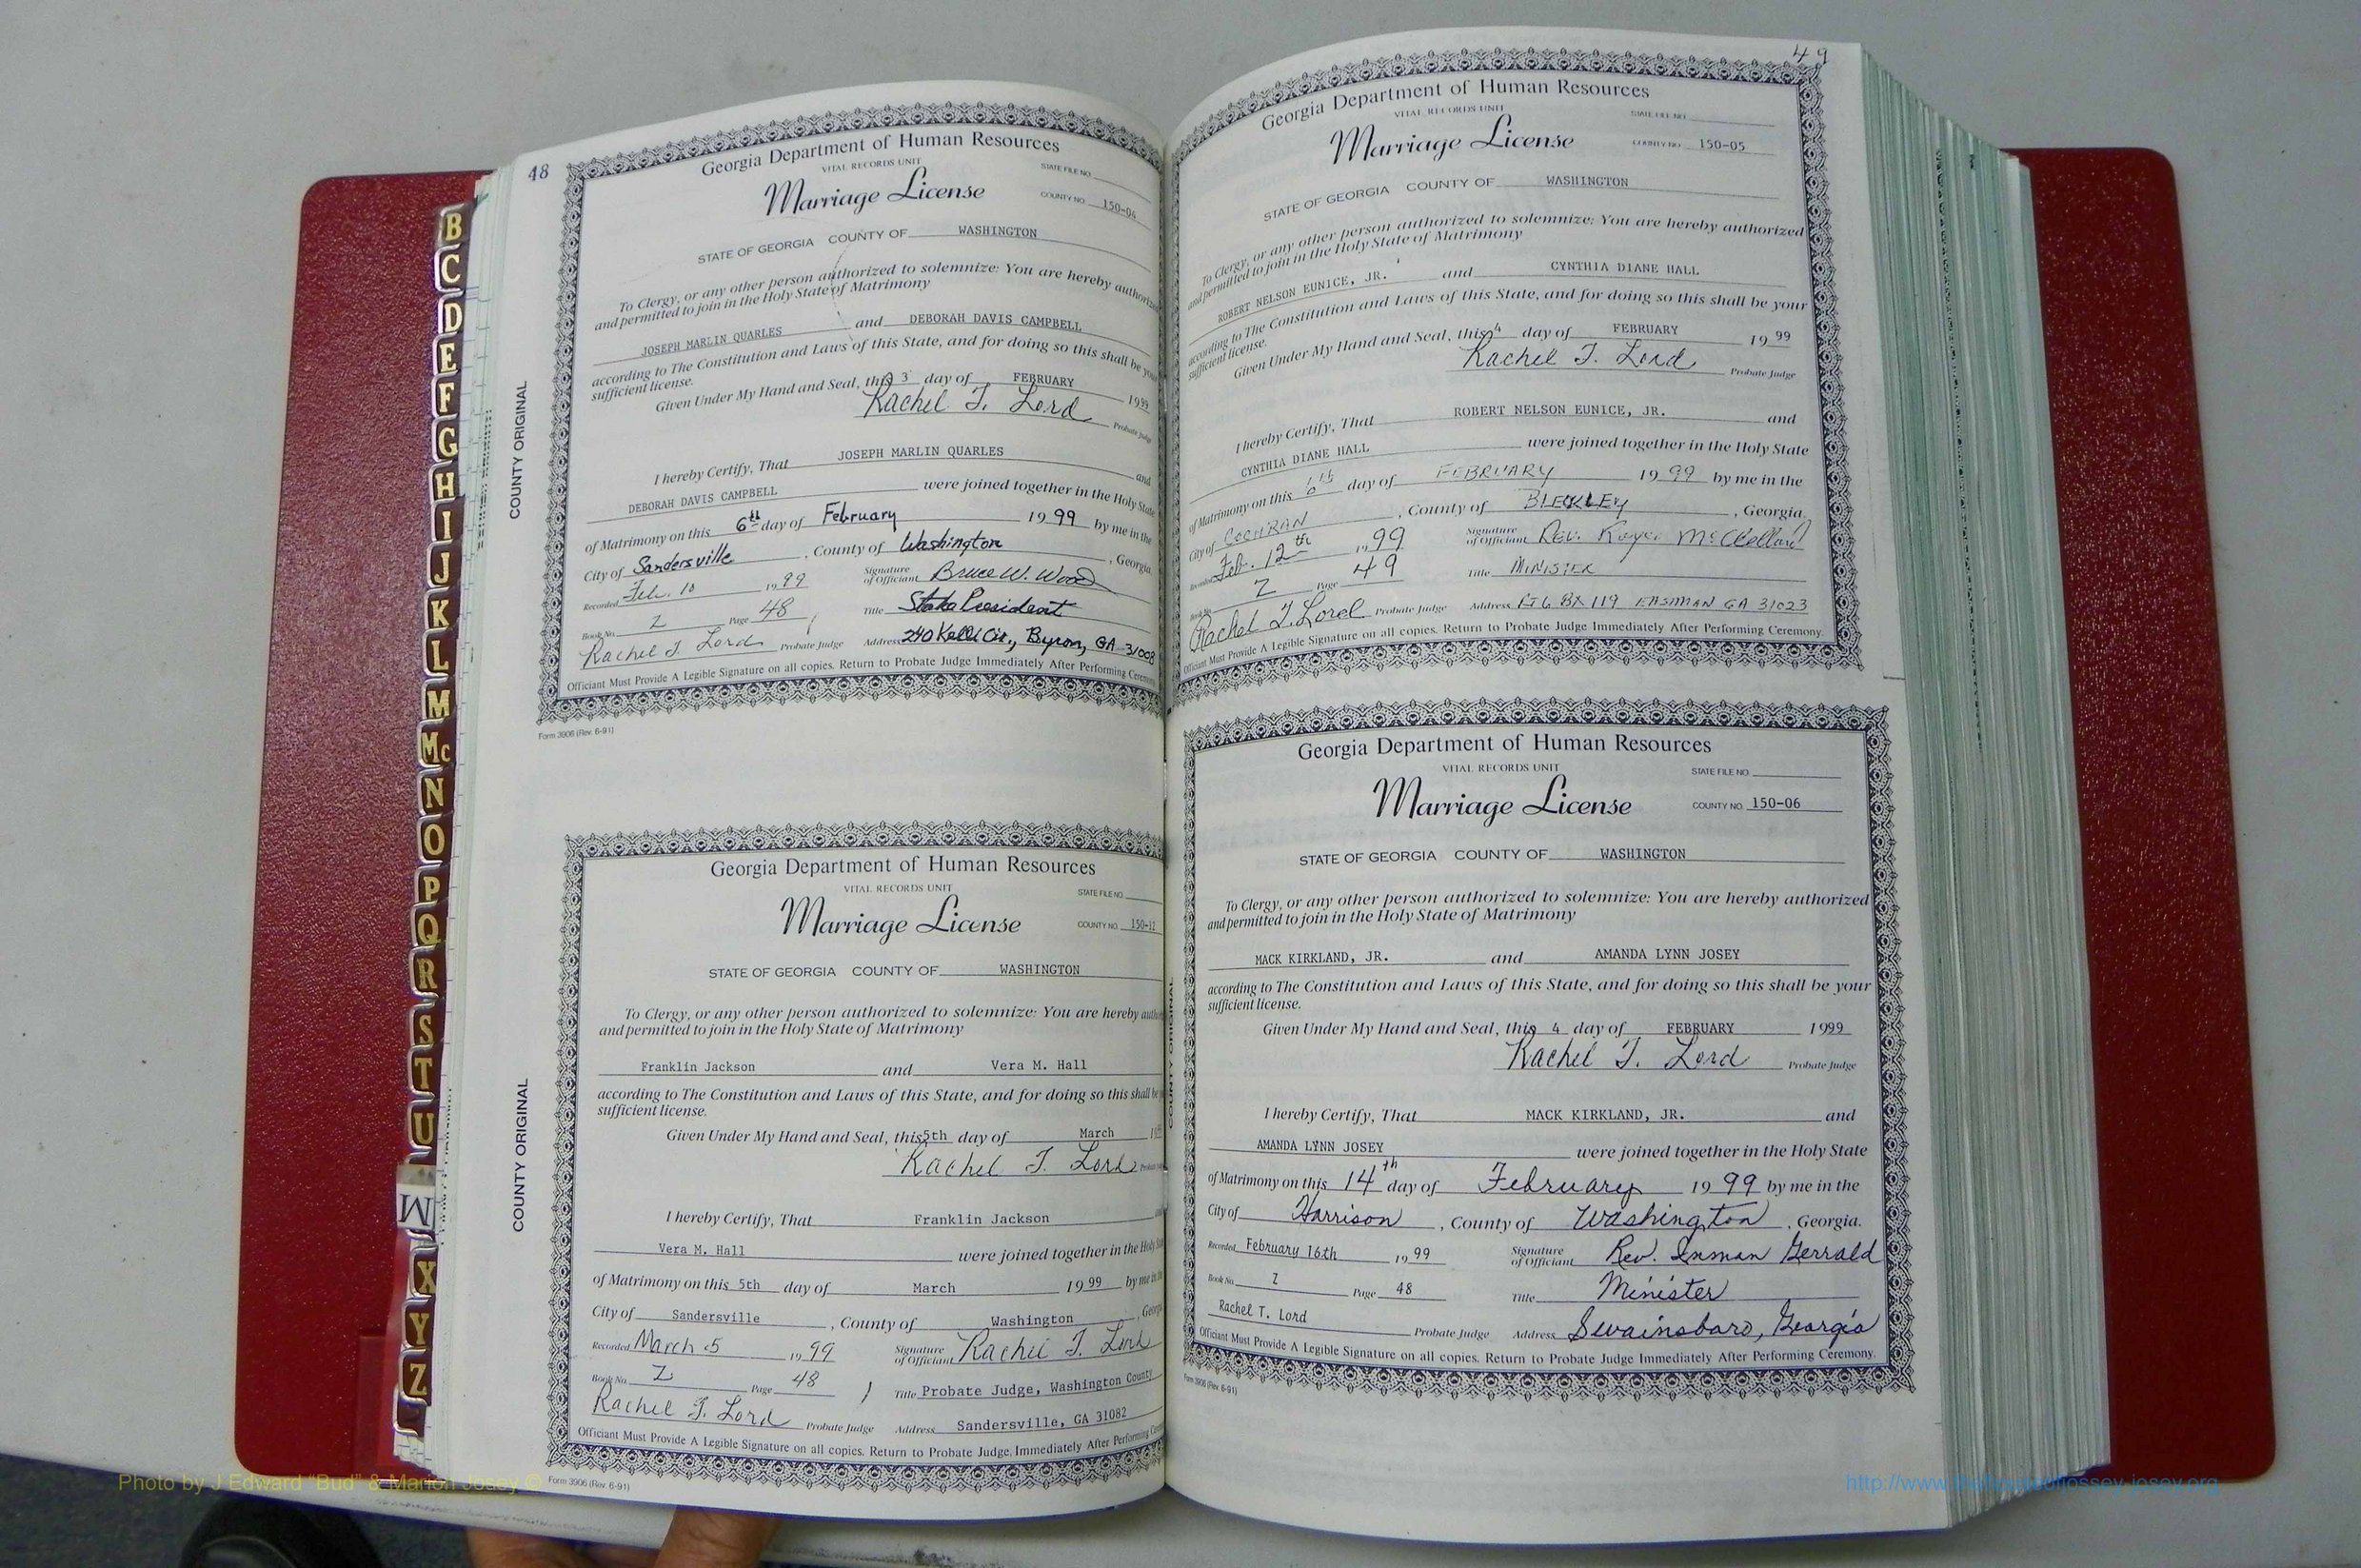 48
Georgia Department of Human Resources
VITAL RECORDS UNIT
STATE FILE NO.
Marriage License
COUNTY NO. 150-04
STATE OF GEORGIA COUNTY OF WASHINGTON
To Clergy, or any other person authorized to solemnize: You are hereby
and permitted to join in the Holy State of Matrimony
JOSEPH MARLIN QUARLES and DEBORAH DAVIS CAMPBELL
according to The Constitution and Laws of this State, and for doing so this shall be
sufficient license.
Given Under My Hand and Seal, this 3 day of FEBRUARY 1999
Rachel T. Lord Probate Judge
I hereby Certify, That JOSEPH MARLIN QUARLES and
DEBORAH DAVIS CAMPBELL were joined together in the Holy State
of Matrimony on this 6th day of February 19 99 by me in the
City of Sandersville, County of Washington, Georgia.
Recorded Feb. 10 19 99 Signature of Officiant Bruce W. Wood
Book No. Z Page 48 Title Stake President
Rachel T Lord Probate Judge Address 240 Kelli Cir., Byron, GA 31008
Officiant Must Provide A Legible Signature on all copies. Return to Probate Judge Immediately After Performing
Form 3906 (Rev. 6-91)
COUNTY ORIGINAL
Georgia Department of Human Resources
VITAL RECORDS UNIT
STATE FILE NO.
Marriage License
COUNTY NO. 150-12
STATE OF GEORGIA COUNTY OF WASHINGTON
To Clergy, or any other person authorized to solemnize: You are hereby
and permitted to join in the Holy State of Matrimony
Franklin Jackson and Vera M. Hall
according to The Constitution and Laws of this State, and for doing so this shall be
sufficient license.
Given Under My Hand and Seal, this 5th day of March
Rachel T. Lord
I hereby Certify, That Franklin Jackson
Vera M. Hall were joined together in the Holy
of Matrimony on this 5th day of March 19 99 by me in the
City of Sandersville, County of Washington, Georgia
Recorded March 5 19 99 Signature of Officiant Rachel T. Lord
Book No. Z Page 48 Title Probate Judge, Washington County
Rachel T. Lord Probate Judge Address Sandersville, GA 31082
Officiant Must Provide A Legible Signature on all copies. Return to Probate Judge Immediately After Performing
Form 3906 (Rev. 6-91)
COUNTY ORIGINAL
49
Georgia Department of Human Resources
VITAL RECORDS UNIT
STATE FILE NO.
Marriage License
COUNTY NO. 150-05
STATE OF GEORGIA COUNTY OF WASHINGTON
To Clergy, or any other person authorized to solemnize: You are hereby authorized
and permitted to join in the Holy State of Matrimony
ROBERT NELSON EUNICE, JR. and CYNTHIA DIANE HALL
according to The Constitution and Laws of this State, and for doing so this shall be your
sufficient license.
Given Under My Hand and Seal, this 4 day of FEBRUARY 19 99
Rachel T. Lord Probate Judge
I hereby Certify, That ROBERT NELSON EUNICE, JR. and
CYNTHIA DIANE HALL were joined together in the Holy State
of Matrimony on this 6th day of FEBRUARY 19 99 by me in the
City of COCHRAN, County of BLECKLEY, Georgia.
Recorded Feb. 12th 1999 Signature of Officiant Rev. McClelland
Book No. Z Page 49 Title MINISTER
Rachel T. Lord Probate Judge Address RT 6 BX 119 EASTMAN GA 31023
Officiant Must Provide A Legible Signature on all copies. Return to Probate Judge Immediately After Performing Ceremony.
COUNTY ORIGINAL
Georgia Department of Human Resources
VITAL RECORDS UNIT
STATE FILE NO.
Marriage License
COUNTY NO. 150-06
STATE OF GEORGIA COUNTY OF WASHINGTON
To Clergy, or any other person authorized to solemnize: You are hereby authorized
and permitted to join in the Holy State of Matrimony
MACK KIRKLAND, JR. and AMANDA LYNN JOSEY
according to The Constitution and Laws of this State, and for doing so this shall be your
sufficient license.
Given Under My Hand and Seal, this 4 day of FEBRUARY 1999
Rachel T. Lord Probate Judge
I hereby Certify, That MACK KIRKLAND, JR. and
AMANDA LYNN JOSEY were joined together in the Holy State
of Matrimony on this 14th day of February 19 99 by me in the
City of Harrison, County of Washington, Georgia.
Recorded February 16th 19 99 Signature of Officiant Rev. Inman Gerrald
Book No. Z Page 48 Title Minister
Rachel T. Lord Probate Judge Address Swainsboro, Georgia
Officiant Must Provide A Legible Signature on all copies. Return to Probate Judge Immediately After Performing Ceremony.
Form 3906 (Rev. 6-91)
B
C
D
E
F
G
H
I
J
K
L
M
Mc
N
O
P
Q
R
S
T
U
W
X
Y
Z
Photo by J Edward "Bud" & Marion Josey ©